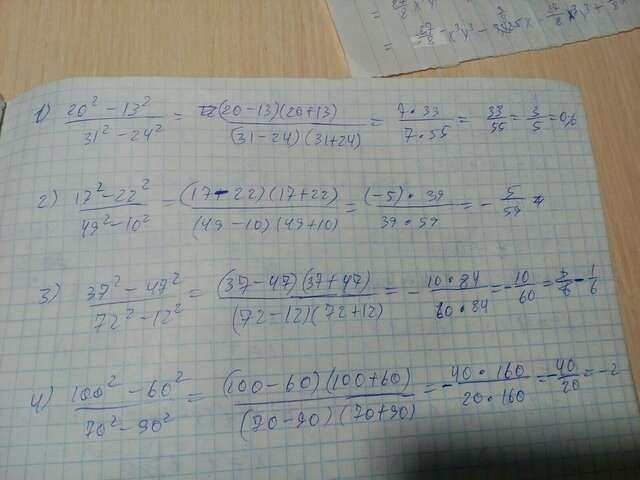 1) (20² − 13²)/(31² − 24²) = (20−13)(20+13)/((31−24)(31+24)) = 7·33/(7·55) = 33/55 = 3/5 = 0,6
2) (17² − 22²)/(49² − 10²) = (17−22)(17+22)/((49−10)(49+10)) = (−5)·39/(39·59) = −5/59
3) (37² − 47²)/(72² − 12²) = (37−47)(37+47)/((72−12)(72+12)) = −10·84/(60·84) = −10/60 = −1/6
4) (100² − 60²)/(70² − 90²) = (100−60)(100+60)/((70−90)(70+90)) = −40·160/(20·160) = −40/20 = −2